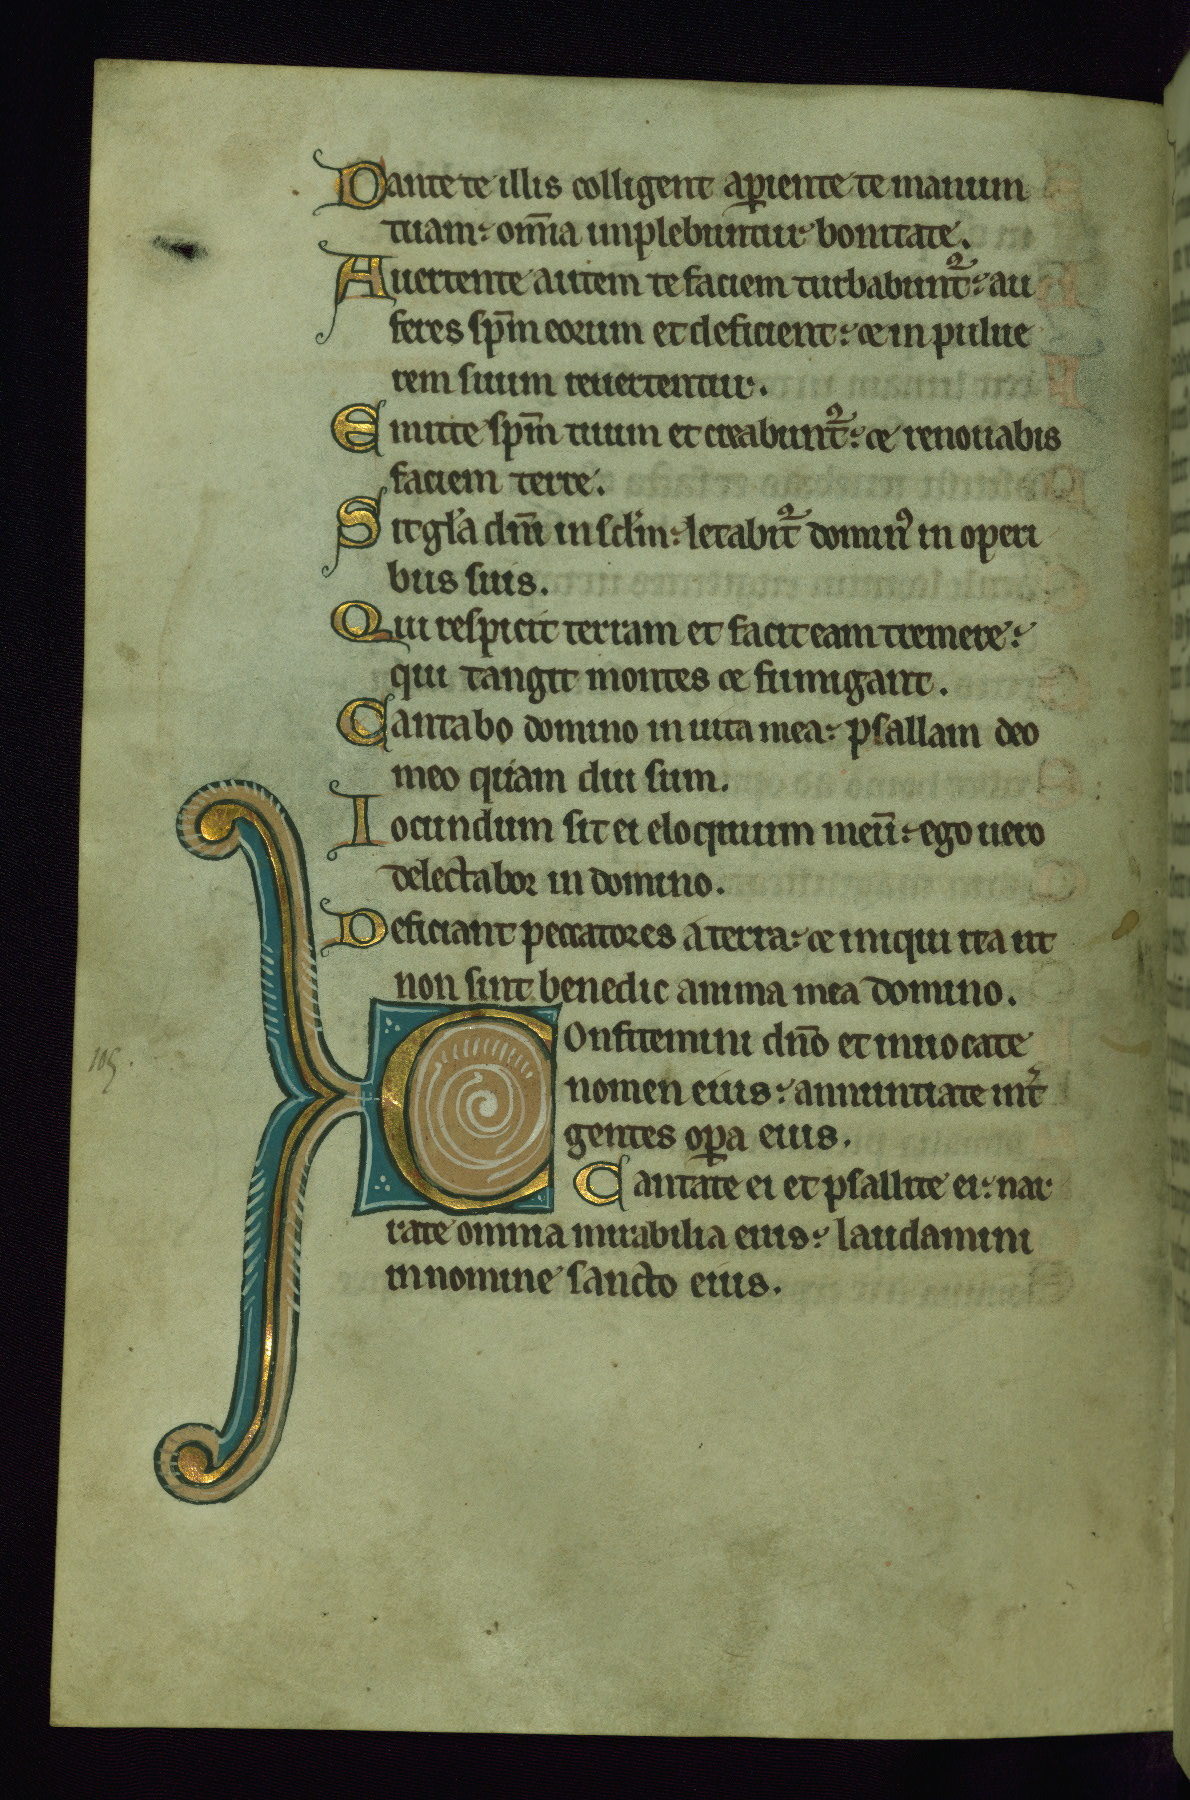 Dante te illis colligent ap̱iente te manum
tuam: om̅ia implebuntur bonitate.
Auertente autem te faciem turbabunt̅ᷣ: au
feres sp̅m eorum et deficient: ⁊ in pulue
rem suum reuertentur.
Emitte sp̅m tuum et creabunt̅ᷣ: ⁊ renouabis
faciem terre.
Sit gl̅a dn̅i in sc̅lm: letabit̅ᷣ dominꝰ in operi
bus suis.
Qui respicit terram et facit eam tremere:
qui tangit montes ⁊ fumigant.
Cantabo domino in uita mea: psallam deo
meo quam diu sum.
Iocundum sit ei eloquium meu̅: ego uero
delectabor in domino.
Deficiant peccatores a terra: ⁊ iniqui ita ut
non sint benedic anima mea domino.
COnfitemini dn̅o et inuocate
nomen eius: annuntiate int̅
gentes op̱a eius.
Cantate ei et psallite ei: nar
rate omnia mirabilia eius: laudamini
in nomine sancto eius.
105.